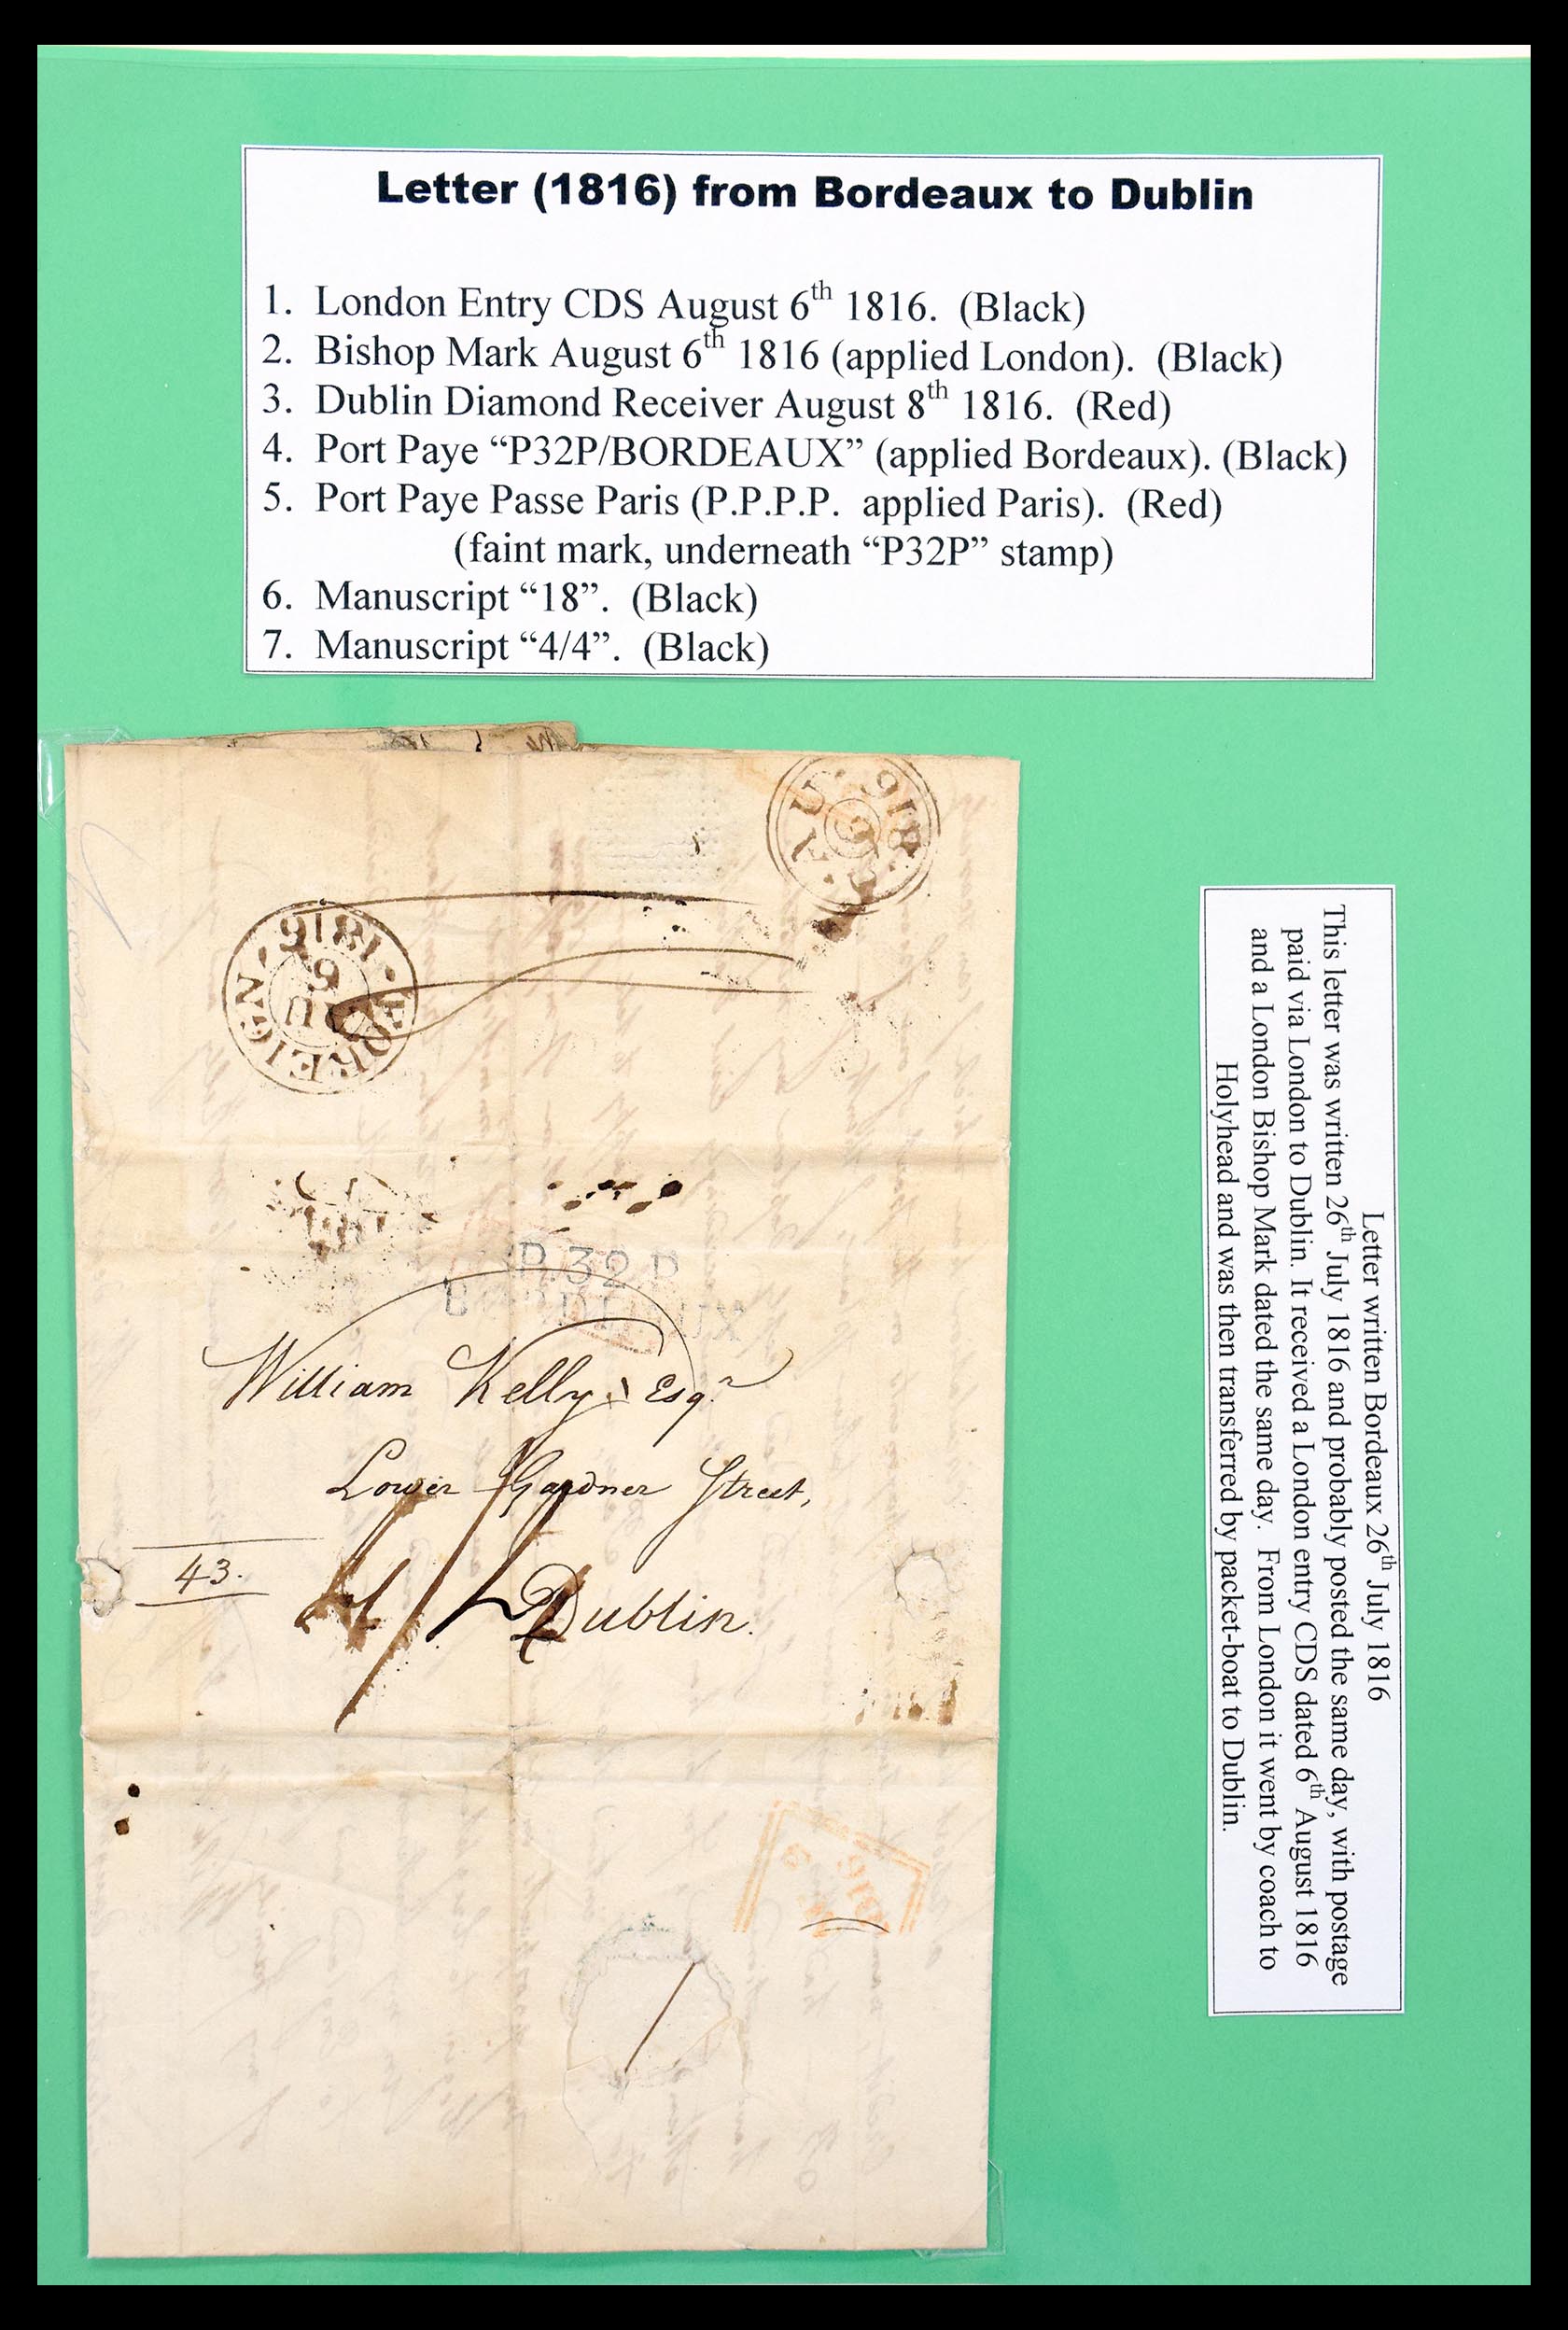 Letter (1816) from Bordeaux to Dublin
1. London Entry CDS August 6th 1816. (Black)
2. Bishop Mark August 6th 1816 (applied London). (Black)
3. Dublin Diamond Receiver August 8th 1816. (Red)
4. Port Paye “P32P/BORDEAUX” (applied Bordeaux). (Black)
5. Port Paye Passe Paris (P.P.P.P. applied Paris). (Red)
(faint mark, underneath “P32P” stamp)
6. Manuscript “18”. (Black)
7. Manuscript “4/4”. (Black)
AU 6 816
FOREIGN 1816
AU 6
P.32.P
BORDEAUX
William Kelly Esqr
Lower Gardner Street,
43.
4/4
Dublin.
Letter written Bordeaux 26th July 1816
This letter was written 26th July 1816 and probably posted the same day, with postage
paid via London to Dublin. It received a London entry CDS dated 6th August 1816
and a London Bishop Mark dated the same day. From London it went by coach to
Holyhead and was then transferred by packet-boat to Dublin.